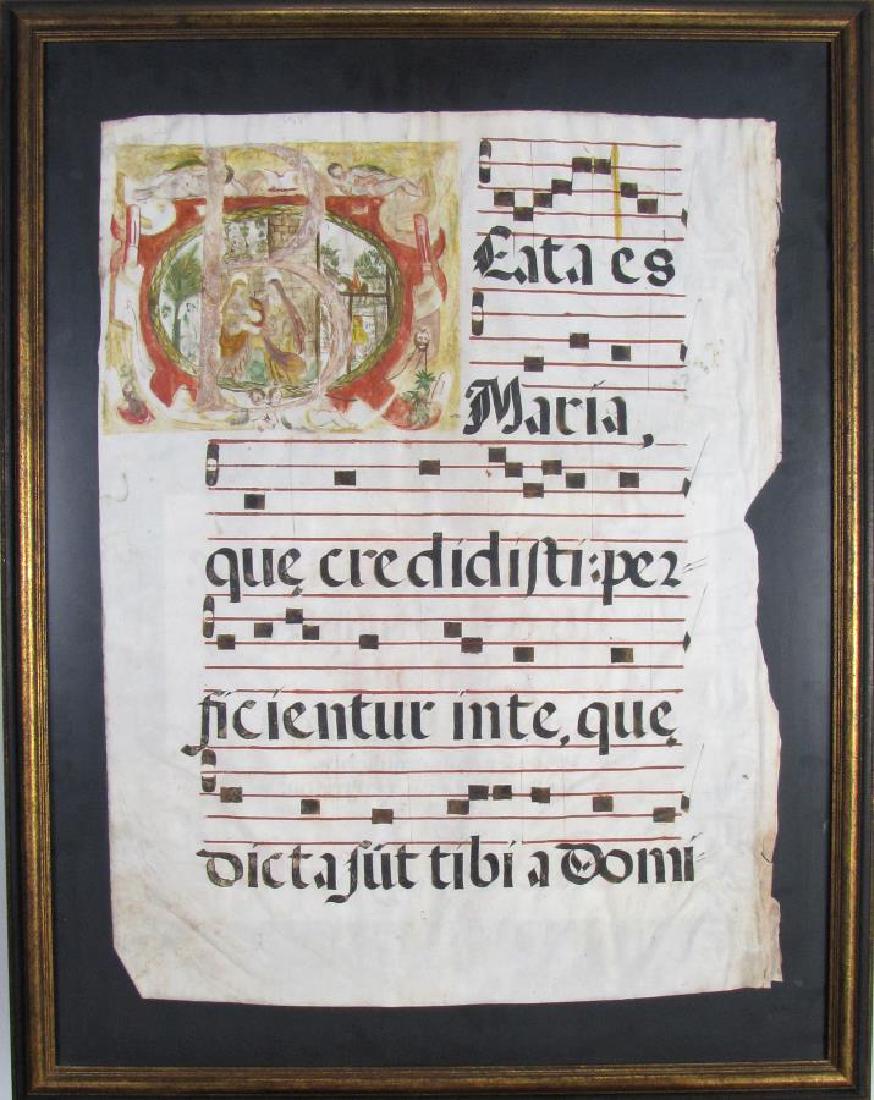 Beata es
Maria,
quę credidisti: per-
ficientur in te, quę
dicta sūt tibi a Domi-